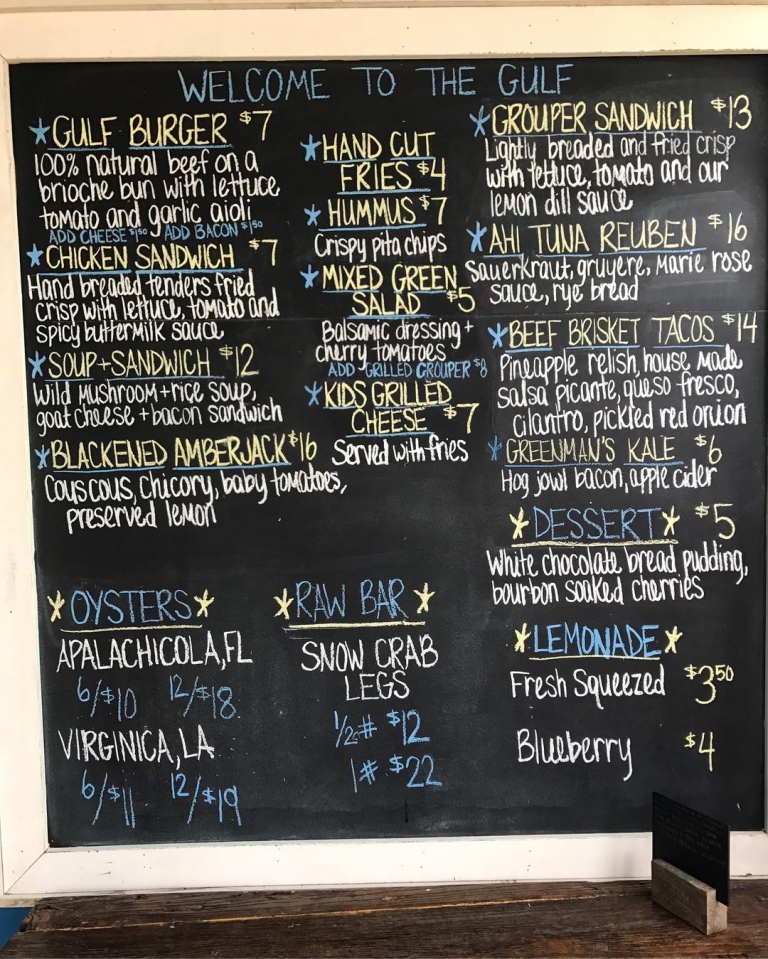 WELCOME TO THE GULF
*GULF BURGER $7
100% natural beef on a
brioche bun with lettuce
tomato and garlic aioli
ADD CHEESE $1.50 ADD BACON $1.50
*CHICKEN SANDWICH $7
Hand breaded tenders fried
crisp with lettuce, tomato and
spicy buttermilk sauce
*SOUP+SANDWICH $12
Wild mushroom+rice soup,
goat cheese +bacon sandwich
*BLACKENED AMBERJACK $16
Couscous, chicory, baby tomatoes,
preserved lemon
*HAND CUT
FRIES $4
*HUMMUS $7
Crispy pita chips
*MIXED GREEN
SALAD $5
Balsamic dressing +
cherry tomatoes
ADD GRILLED GROUPER $8
*KIDS GRILLED
CHEESE $7
Served with fries
*GROUPER SANDWICH $13
Lightly breaded and fried crisp
with lettuce, tomato and our
lemon dill sauce
*AHI TUNA REUBEN $16
Sauerkraut, gruyere, Marie rose
sauce, rye bread
*BEEF BRISKET TACOS $14
Pineapple relish, house made
salsa picante, queso fresco,
cilantro, pickled red onion
*GREENMAN'S KALE $6
Hog jowl bacon, apple cider
*DESSERT* $5
White chocolate bread pudding,
bourbon soaked cherries
*LEMONADE*
Fresh Squeezed $3.50
Blueberry $4
*OYSTERS*
APALACHICOLA, FL
6/$10 12/$18
VIRGINICA, LA
6/$11 12/$19
*RAW BAR*
SNOW CRAB
LEGS
1/2# $12
1# $22